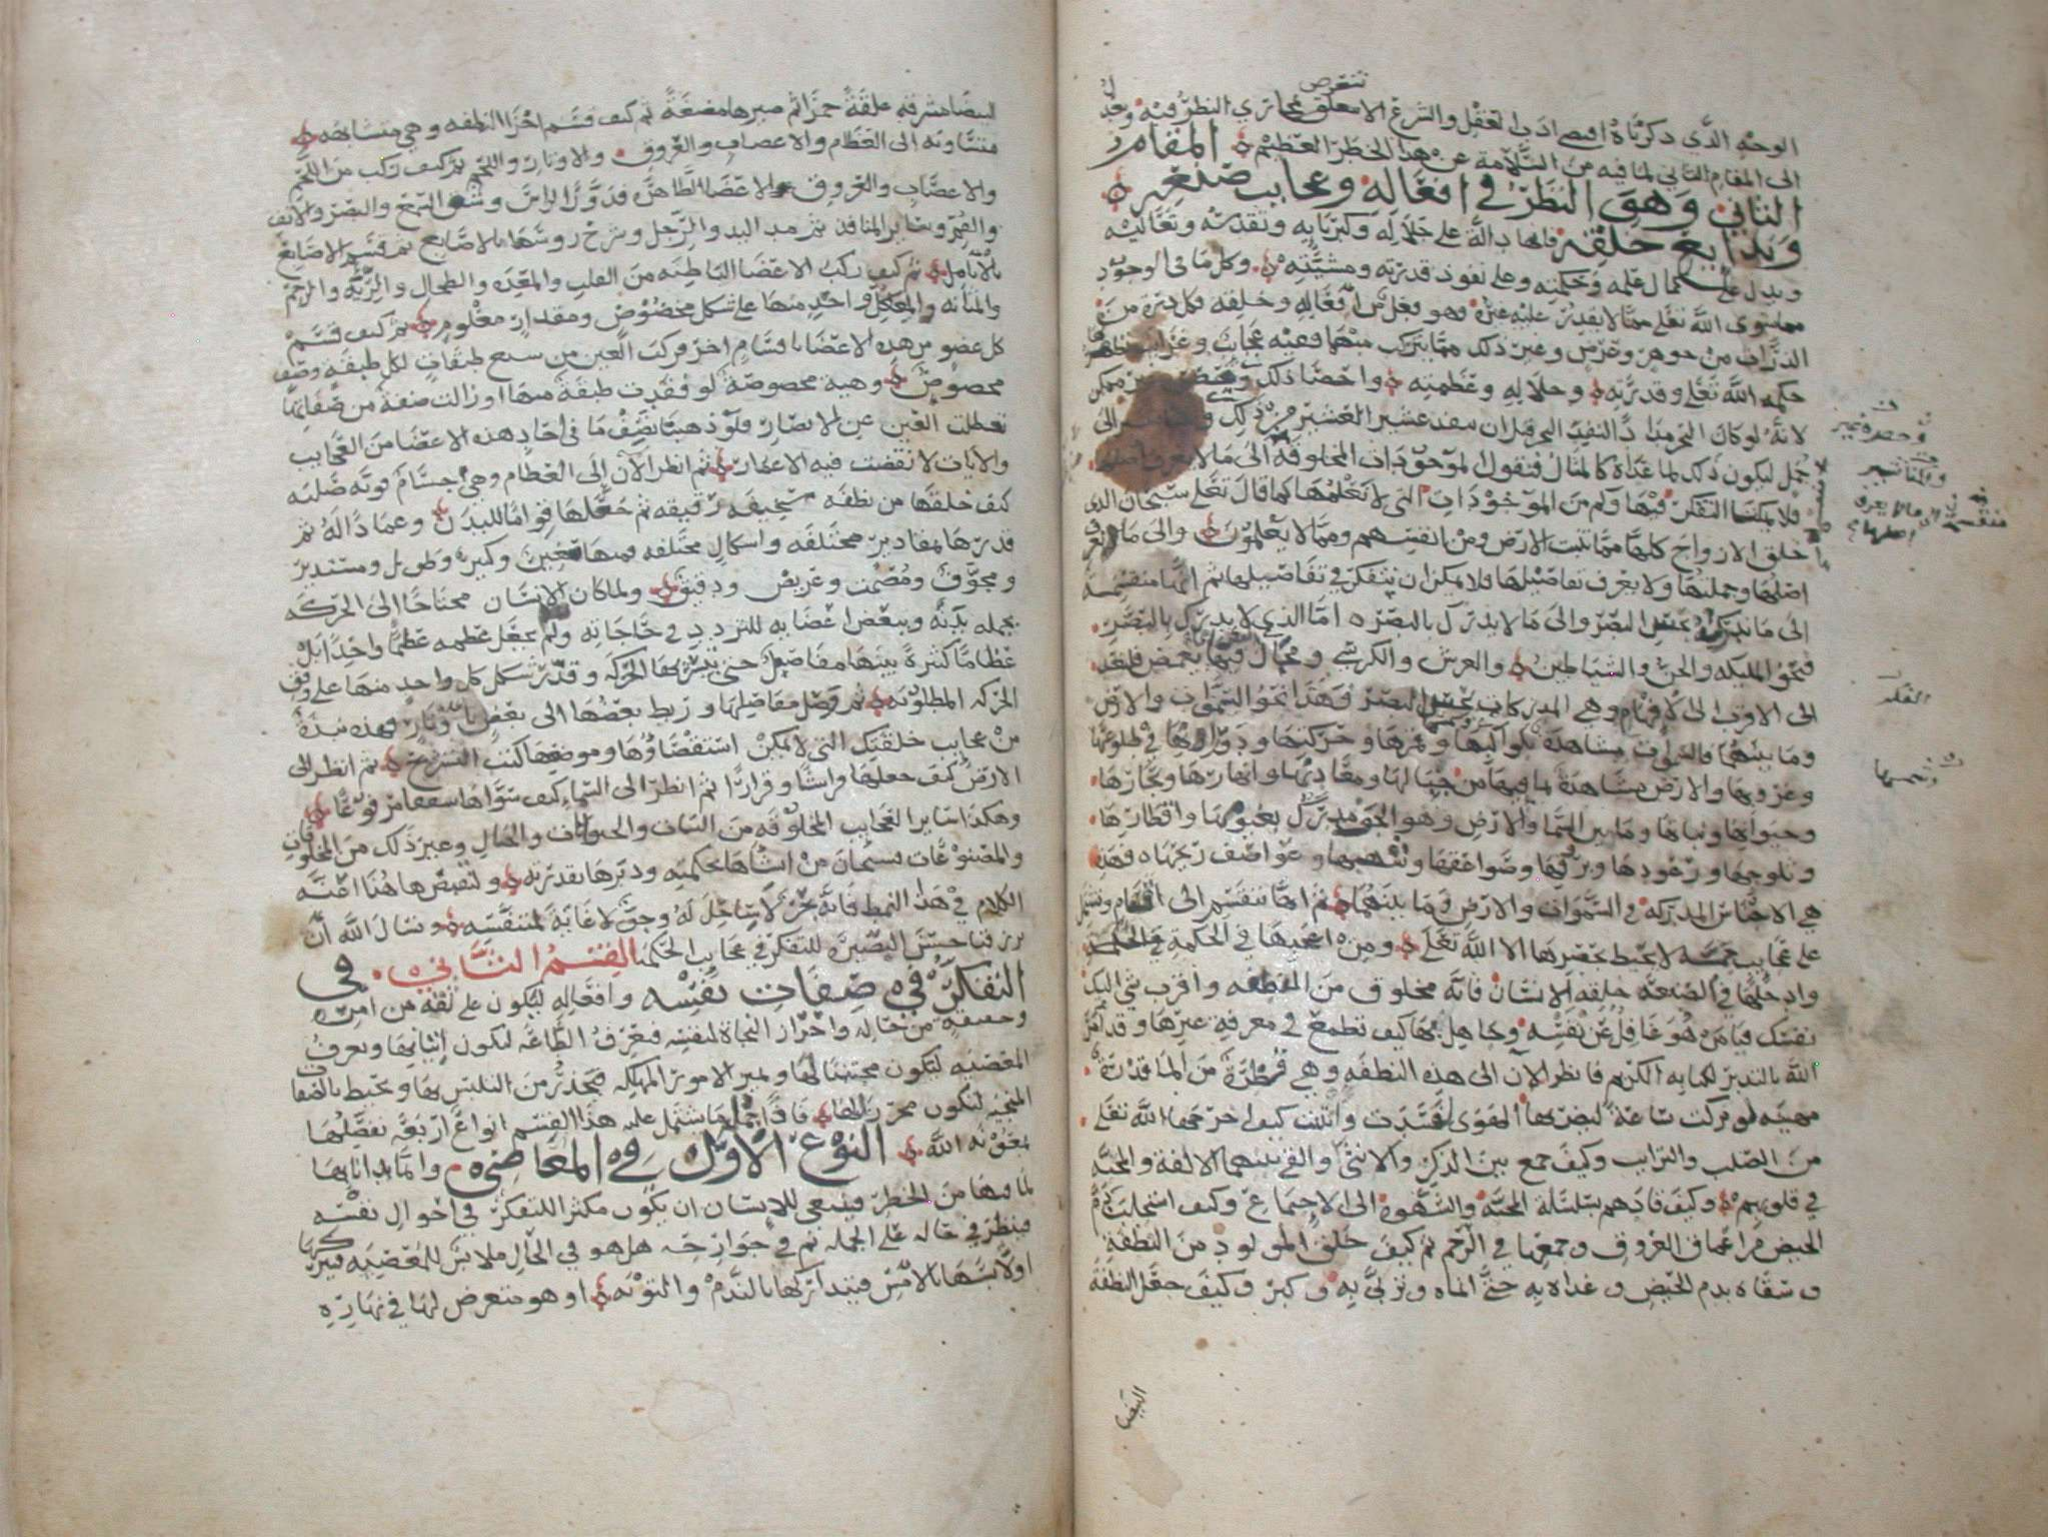 الوجه الذي ذكرناه اقتضى ادب العقل والشرع الا نتعرض لمجاري النظر فيه ونعدل
الى المقام الثاني لما فيه من السلامة عن هذا الخطر العظيم المقام
الثاني وهو النظر في افعاله وعجايب صنعه
وبدايع خلقه فانها دالة على جلاله وكبريايه وتقدسه وتعاليه
ويدل على كمال علمه وحكمته وعلى نفوذ قدرته ومشيته وكل ما في الوجود
مما سوى الله تعلى مما لا يقدر عليه غيره فهو فعل من افعاله وخلقه فكل ذرة من
الذرات من جوهر وعرض وغير ذلك مما يتركب منها ففيه عجايب وغرايب تظهر
حكمة الله تعلى وقدرته وجلاله وعظمته واحصا ذلك غير ممكن
لانه لو كان البحر مدادا لنفد البحر قبل ان ينفد عشير العشير من ذلك
جمل ليكون ذلك لما عداه كالمثال فنقول الموجودات المخلوقة الى ما لا يعرف اصلها
فلا يمكننا التفكر فيها وكم من الموجودات التي لا نعلمها كما قال تعلى سبحان الذي
خلق الازواج كلها مما تنبت الارض ومن انفسهم ومما لا يعلمون والى ما يعرف
اصلها وجملتها ولا يعرف تفاصيلها فلا يمكن ان نتفكر في تفاصيلها ثم انها منقسمة
الى ما يدرك بحس البصر والى ما لا يدرك بالبصر اما الذي لا يدرك بالبصر
فنحو المليكة والجن والشياطين والعرش والكرسي ومجال فيها يغمض فلنعد
الى الاقرب الى الافهام وهي المدركات بحس البصر وهذا نحو السموات والارض
وما بينهما فالسموات مشاهدة بكواكبها وقمرها وحركتها ودورانها في طلوعها
وغروبها والارض مشاهدة بما فيها من جبالها ومعادنها وانهارها وبحارها
وحيوانها ونباتها وما بين السما والارض وهو الجو مدرك بغيومها واقطارها
وثلوجها ورعودها وبرقها وصواعقها وشهبها وعواصف ريحها فهذه
هي الاجناس المدركة في السموات والارض وما بينهما ثم انها تنقسم الى اقسام وتشتمل
على عجايب لا يحيط بحصرها الا الله تعلى ومن اعجبها في الحكمة
وادخلها في الصنعة خلقه الانسان فانه مخلوق من النطفة واقرب شي اليك
نفسك فيا من هو غافل عن نفسه وجاهل بها كيف تطمع في معرفة غيرها وقد امر
الله بالتدبر لكتابه الكريم فانظر الان الى هذه النطفة وهي قطرة من الما قذرة
مهينة لو تركت ساعة ليضربها الهوى لفسدت وانتنت كيف اخرجها الله تعلى
من الصلب والترايب وكيف جمع بين الذكر والانثى والقى بينهما الالفة والمحبة
في قلوبهم وكيف قادهم بسلسلة المحبة والشهوة الى الاجتماع وكيف استجلب دم
الحيض من اعماق العروق وجمعها في الرحم ثم كيف خلق المولود من النطفة
وسقاه بدم الحيض وغذاه به حتى انماه وتربى به وكبر وكيف جعل النطفة
البيضا
البيضا مشرقة علقة حمرا ثم صيرها مضغة ثم كيف قسم اجزا النطفة وهي متشابهة
متساوية الى العظام والاعصاب والعروق والاوتار واللحم ثم كيف ركب من اللحم
والاعصاب والعروق والاعضا الظاهرة فدور الراس وشق السمع والبصر والانف
والفم وساير المنافذ ثم مد اليد والرجل وشرح روسها بالاصابع ثم قسم الاصابع
بالانامل ثم كيف ركب الاعضا الباطنة من القلب والمعدة والطحال والرية والرحم
والمثانة والمعا كل واحد منها على شكل مخصوص ومقدار معلوم ثم كيف قسم
كل عضو من هذه الاعضا باقسام اخر فركب العين من سبع طبقات لكل طبقة وصف
مخصوص وهية مخصوصة لو فقدت طبقة منها او زالت صفة من صفاتها
تعطلت العين عن الابصار فلو ذهبنا نصف ما في احاد هذه الاعضا من العجايب
والايات لانقضت فيه الاعمار ثم انظر الان الى العظام وهي اجسام قوية صلبة
كيف خلقها من نطفة سخيفة رقيقة ثم جعلها قواما للبدن وعمادا له ثم
قدرها بمقادير مختلفة واشكال مختلفة فمنها صغير وكبير وطويل ومستدير
ومجوف ومصمت وعريض ودقيق ولما كان الانسان محتاجا الى الحركة
بجملة بدنه وببعض اعضايه للتردد في حاجاته ولم يجعل عظمه عظما واحدا بل
عظاما كثيرة بينها مفاصل حتى تتيسر بها الحركة وقدر شكل كل واحد منها على وفق
الحركة المطلوبة ثم وصل مفاصلها وربط بعضها الى بعض باوتار فهذه نبذة
من عجايب خلقتك التي لا يمكن استقصاوها وموضعها كتب التشريح ثم انظر الى
الارض كيف جعلها فراشا وقرارا ثم انظر الى السما كيف سواها سقفا مرفوعا
وهكذا ساير العجايب المخلوقة من النبات والحيوانات والجبال وغير ذلك من المخلوقات
والمصنوعات فسبحان من انشاها بحكمته ودبرها بقدرته ولنقبض هاهنا اعنة
الكلام في هذا النمط فانه بحر لا ساحل له وجو لا غاية لمتنفسه ونسال الله ان
يرزقنا حسن البصيرة للتفكر في عجايب الحكمة القسم الثاني في
التفكر في صفات نفسه وافعاله ليكون على ثقة من امره
وحقيقة من حاله واحراز النجاة لنفسه فيعرف الطاعة لتكون اتيانها ويعرف
المعصية ليكون مجتنبا لها ويميز الامور المهلكة فيحذر من التلبس بها ويحيط بالصفات
المنجية لتكون محرزا لها فاذا جملة ما يشتمل عليه هذا القسم انواع اربعة نفصلها
بمعونة الله النوع الاول في المعاصي وانما بدانا بها
لما فيها من الخطر فينبغي للانسان ان يكون مكثرا للتفكر في احوال نفسه
فينظر في حاله على الجملة ثم في جوارحه هل هو في الحال ملابس للمعصية فيتركها
او لابسها بالامس فيتداركها بالندم والتوبة او هو متعرض لها في نهاره